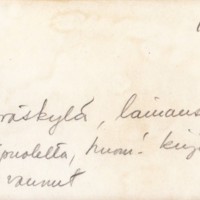 äskylä, lainaus
puolelta, huom! kirj
vaunut